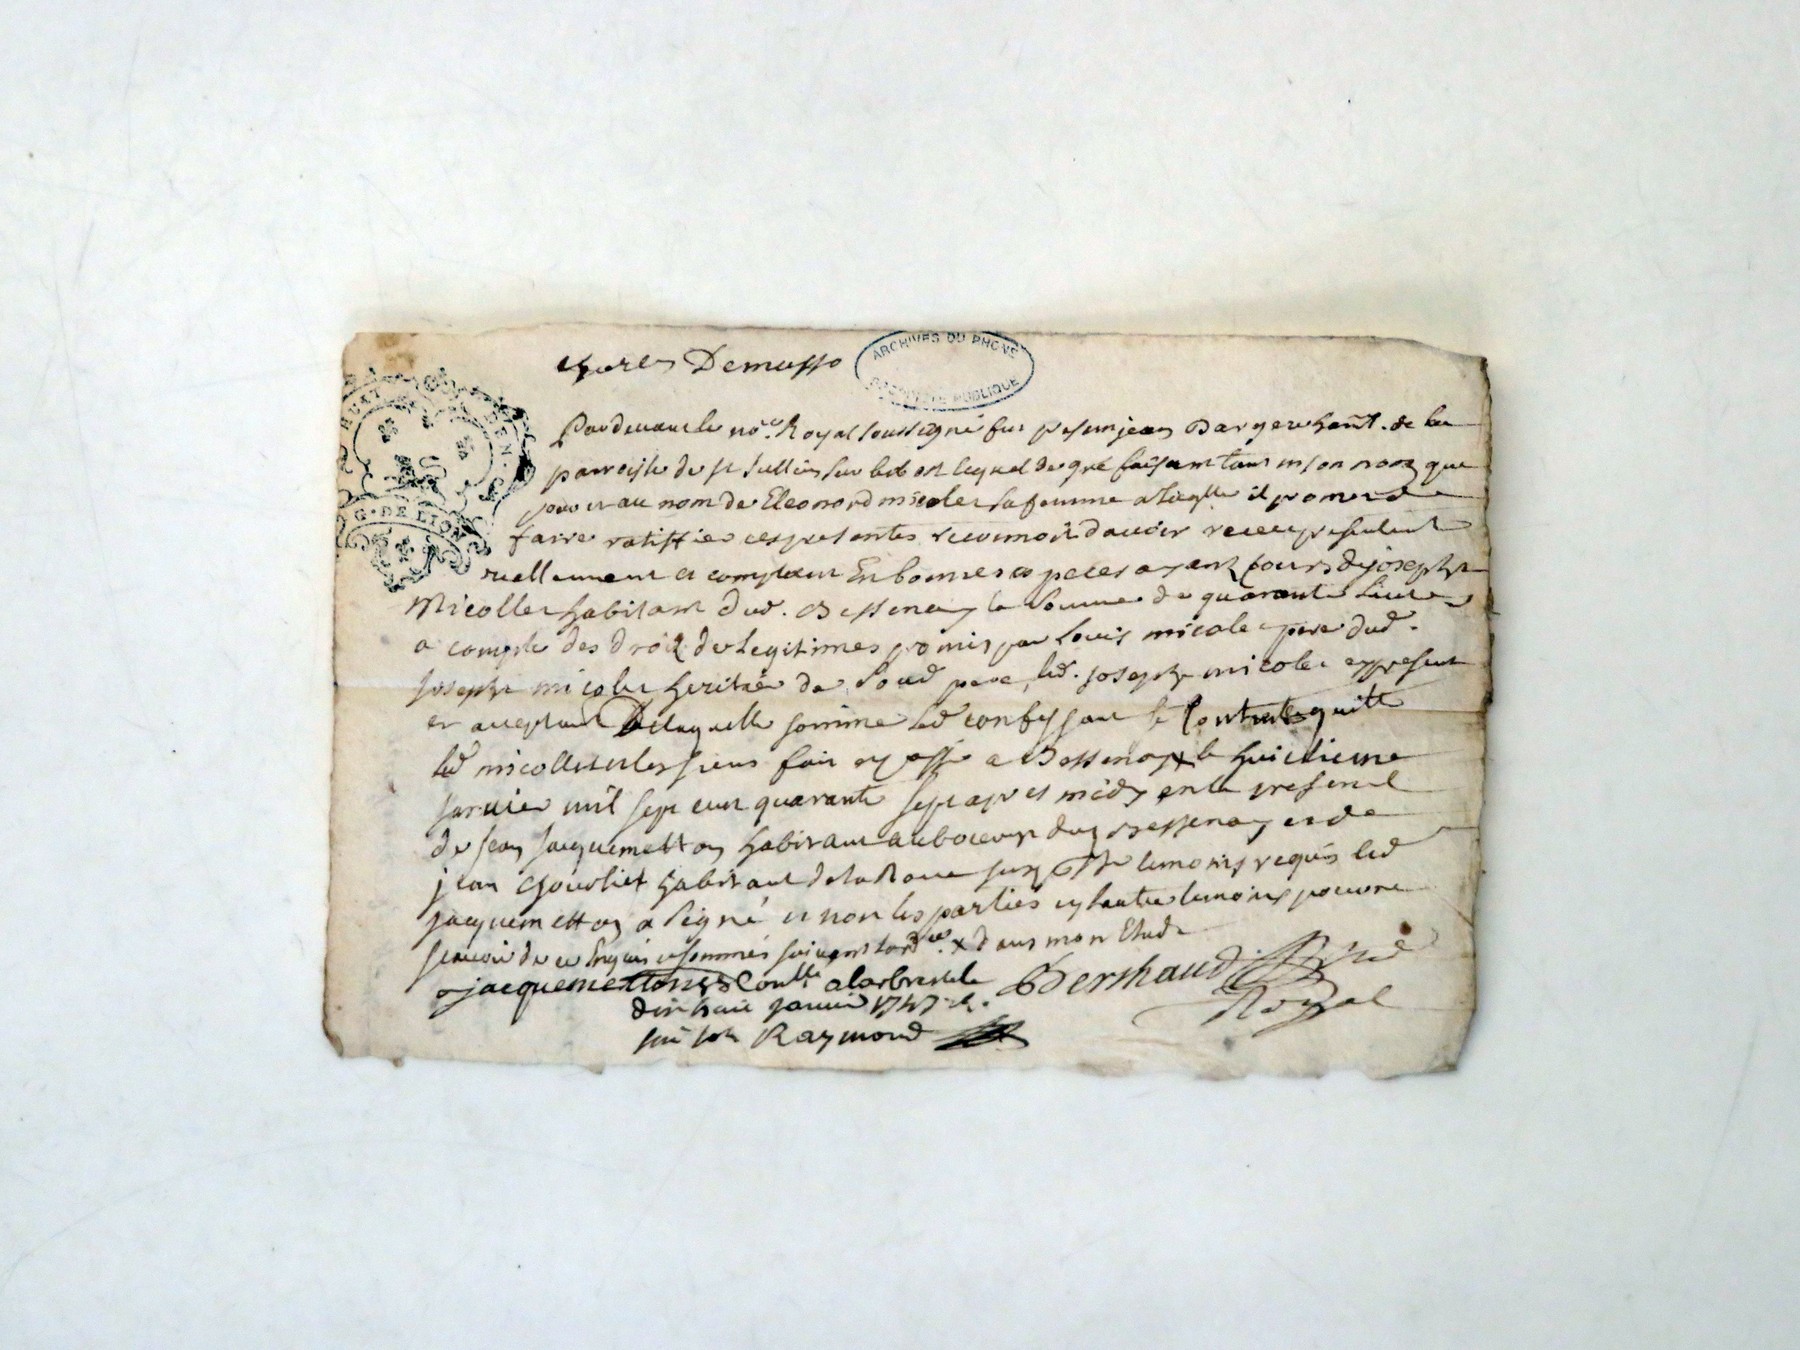 ARCHIVES DU RHONE
PUBLIQUE
G. DE LION
Pardevant le no.re Royal soussigné fut present jean Dargere hant. de la
parroisse de st Jullien sur bibost lequel de gré faisant tant en son nom que
pour et au nom de Eleonord micolet sa femme a laqlle il promet de
faire ratiffier ces presentes reconnoit davoir receu presentement
reellement et comptant En bonnes especes ayant cours de joseph
Micollet habitant dud. Bessenay la somme de quarante livres
a compte des droit de legitimes promis par Louis micolet pere dud.
joseph micolet heritié de soud pere, led. joseph micolet cy present
et acceptant De laquelle somme led confessant se Contente quitte
led micollet et les siens fait et passé a Bessenay x le huictieme
janvier mil sept cent quarante sept apres midy en la presence
de jean jacquemetton habitant au bourg dud Bessenay et de
jean habitant de la temoins requis led
jacquemetton a signé et non les parties ny lautre temoins pour ne
scavoir de ce Enquis et sommés suivant lord.ce x dans mon Etude
jacquemetton Conllé a larbresle
dix huit janvier 1747
Raymond
Berthaud
Royal